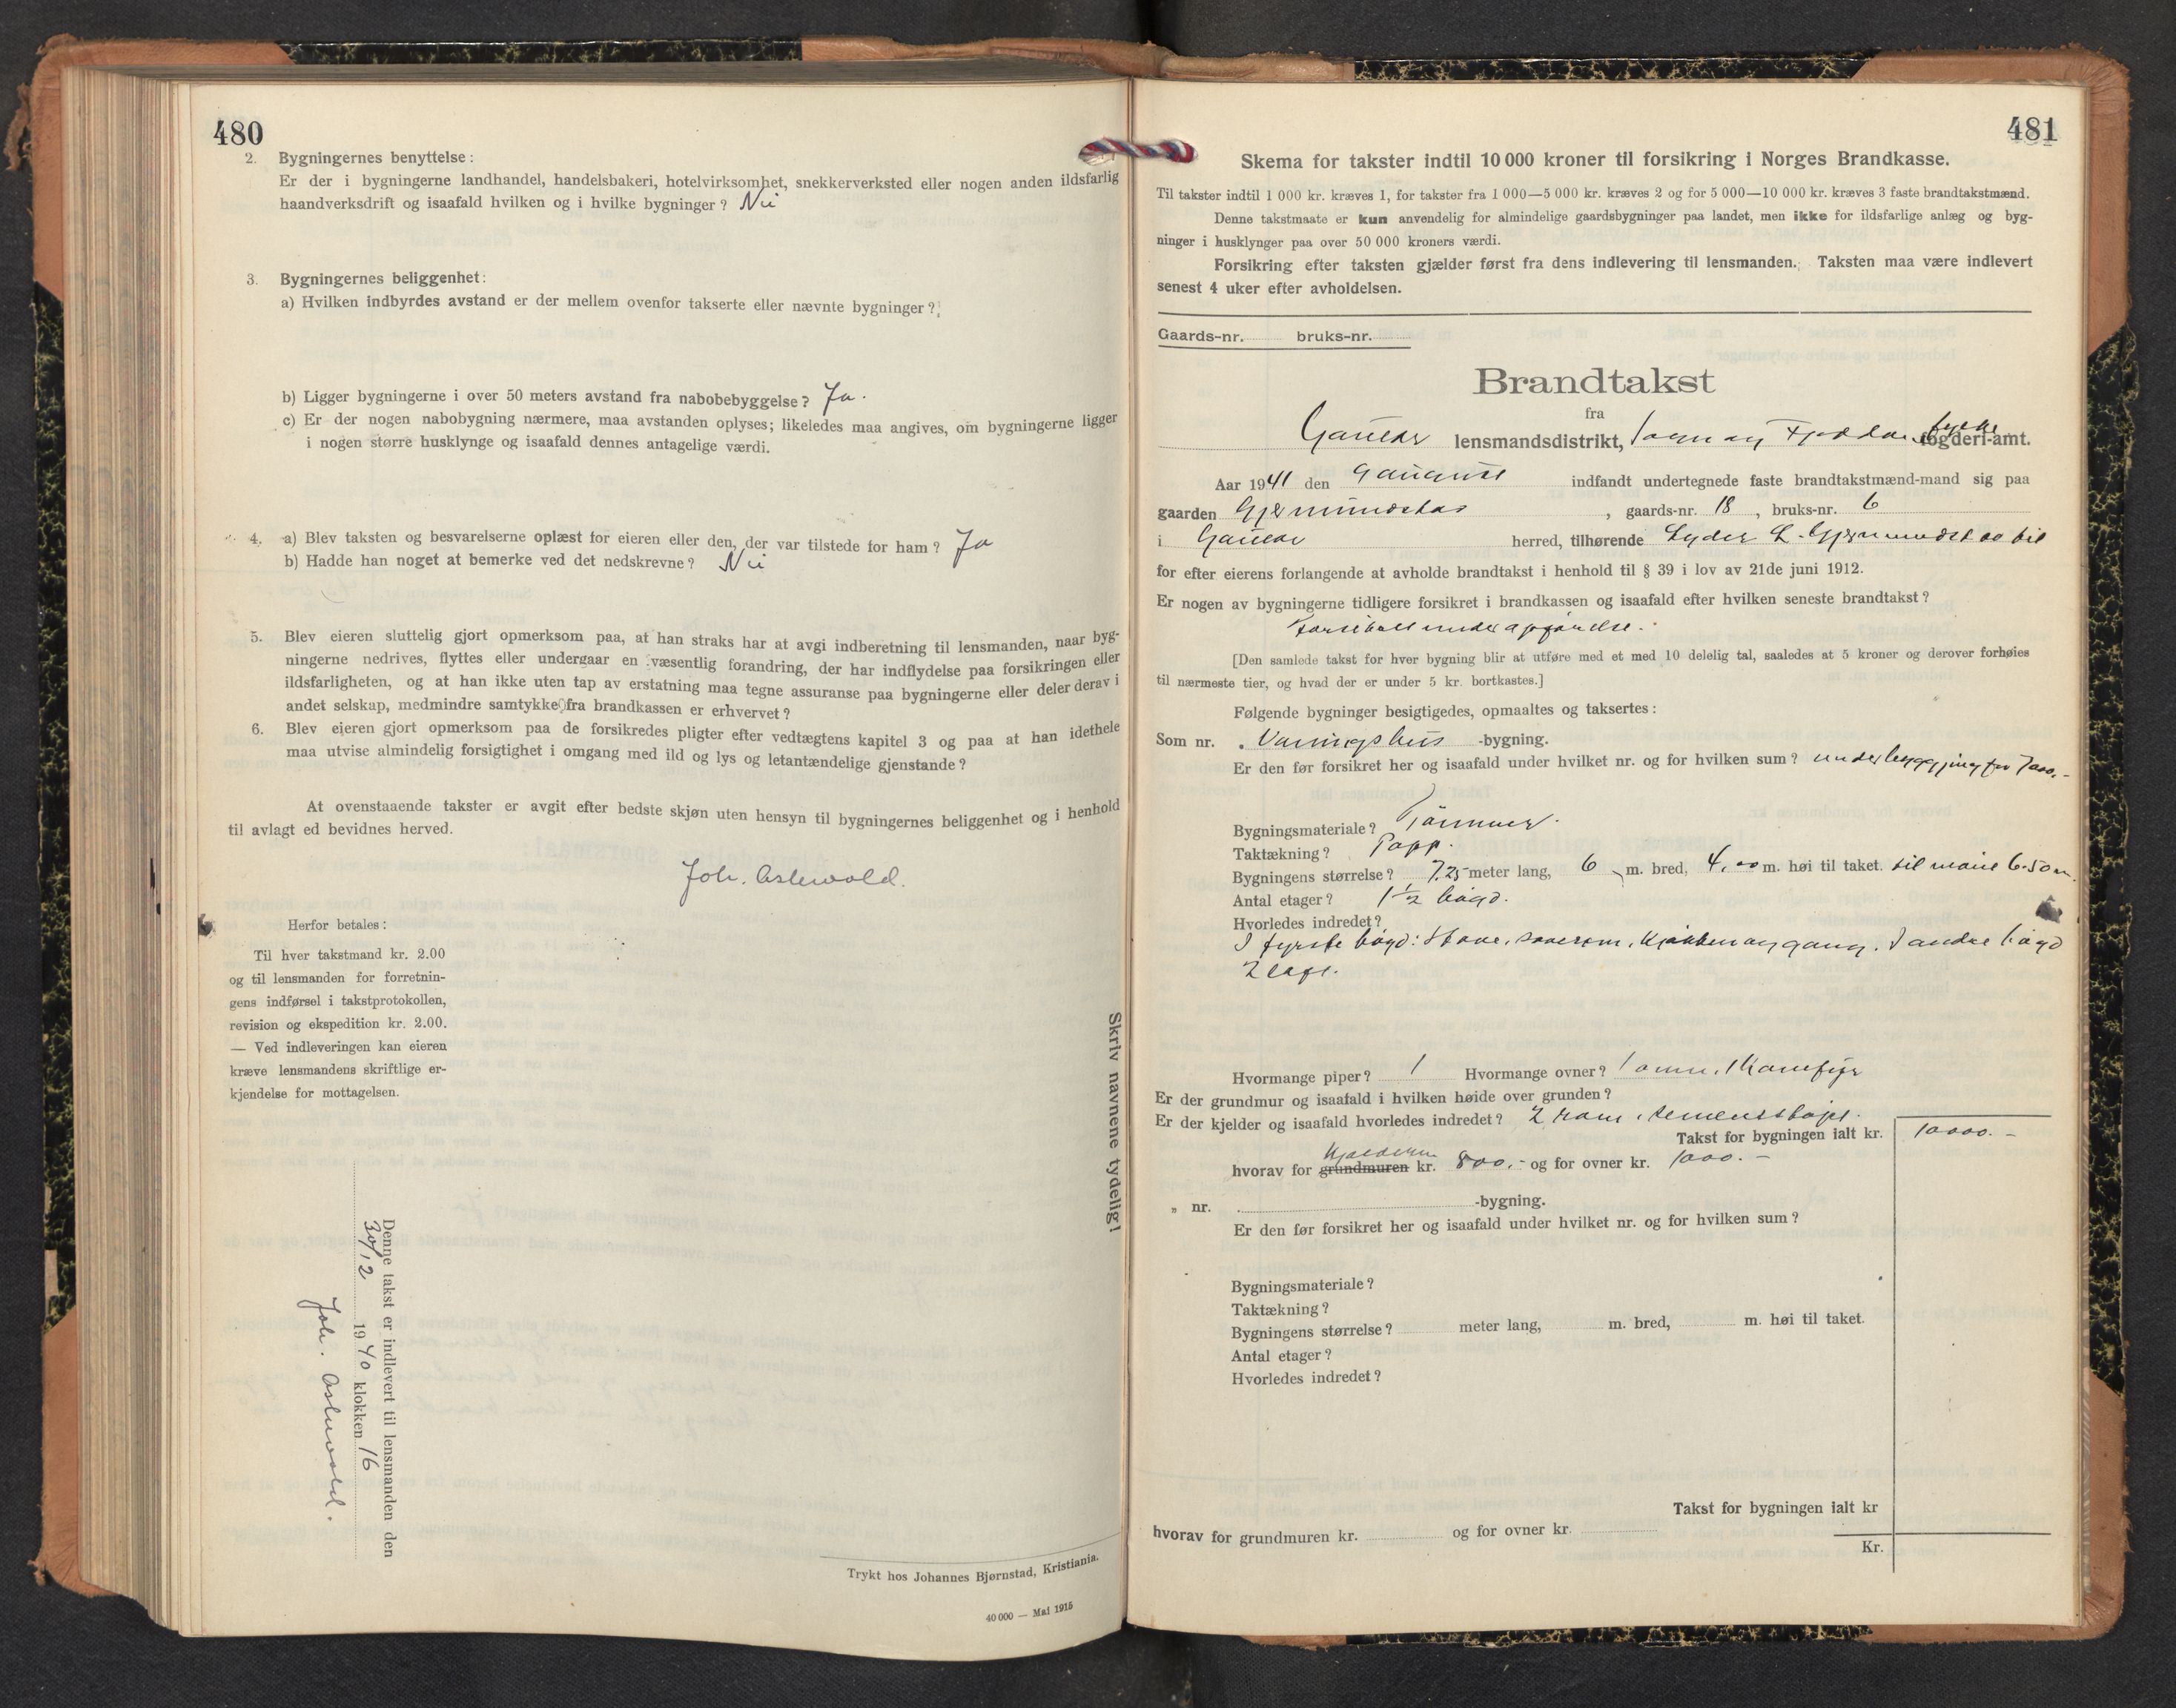 480
2. Bygningernes benyttelse:
Er der i bygningerne landhandel, handelsbakeri, hotelvirksomhet, snekkerverksted eller nogen anden ildsfarlig
haandverksdrift og isaafald hvilken og i hvilke bygninger? Nei
3. Bygningernes beliggenhet:
a) Hvilken indbyrdes avstand er der mellem ovenfor takserte eller nævnte bygninger?
b) Ligger bygningerne i over 50 meters avstand fra nabobebyggelse? Ja.
c) Er der nogen nabobygning nærmere, maa avstanden oplyses; likeledes maa angives, om bygningerne ligger
i nogen større husklynge og isaafald dennes antagelige værdi.
4. a) Blev taksten og besvarelserne oplæst for eieren eller den, der var tilstede for ham? Ja
b) Hadde han noget at bemerke ved det nedskrevne? Nei
5. Blev eieren sluttelig gjort opmerksom paa, at han straks har at avgi indberetning til lensmanden, naar byg-
ningerne nedrives, flyttes eller undergaar en væsentlig forandring, der har indflydelse paa forsikringen eller
ildsfarligheten, og at han ikke uten tap av erstatning maa tegne assuranse paa bygningerne eller deler derav i
andet selskap, medmindre samtykke fra brandkassen er erhvervet?
6. Blev eieren gjort opmerksom paa de forsikredes pligter efter vedtægtens kapitel 3 og paa at han idethele
maa utvise almindelig forsigtighet i omgang med ild og lys og letantændelige gjenstande?
At ovenstaaende takster er avgit efter bedste skjøn uten hensyn til bygningernes beliggenhet og i henhold
til avlagt ed bevidnes herved.
Joh. Osluvold.
Herfor betales:
Til hver takstmand kr. 2.00
og til lensmanden for forretnin-
gens indførsel i takstprotokollen,
revision og ekspedition kr. 2.00.
— Ved indleveringen kan eieren
kræve lensmandens skriftlige er-
kjendelse for mottagelsen.
Denne takst er indlevert til lensmanden den
30/12 1940 klokken 16
Joh. Osluvold.
Skriv navnene tydelig!
Trykt hos Johannes Bjørnstad, Kristiania.
40 000 — Mai 1915
481
Skema for takster indtil 10 000 kroner til forsikring i Norges Brandkasse.
Til takster indtil 1 000 kr. kræves 1, for takster fra 1 000—5 000 kr. kræves 2 og for 5 000—10 000 kr. kræves 3 faste brandtakstmænd.
Denne takstmaate er kun anvendelig for almindelige gaardsbygninger paa landet, men ikke for ildsfarlige anlæg og byg-
ninger i husklynger paa over 50 000 kroners værdi.
Forsikring efter taksten gjælder først fra dens indlevering til lensmanden. Taksten maa være indlevert
senest 4 uker efter avholdelsen.
Gaards-nr. bruks-nr.
Brandtakst
fra
Gaular lensmandsdistrikt, Sogn og Fjordane fylke fogderi-amt.
Aar 1941 den 9 august indfandt undertegnede faste brandtakstmænd-mand sig paa
gaarden Gjermundstad, gaards-nr. 18, bruks-nr. 6
i Gaular herred, tilhørende Lyder L. Gjermundstad til
for efter eierens forlangende at avholde brandtakst i henhold til § 39 i lov av 21de juni 1912.
Er nogen av bygningerne tidligere forsikret i brandkassen og isaafald efter hvilken seneste brandtakst?
under oppførelse.
[Den samlede takst for hver bygning blir at utføre med et med 10 delelig tal, saaledes at 5 kroner og derover forhøies
til nærmeste tier, og hvad der er under 5 kr. bortkastes.]
Følgende bygninger besigtigedes, opmaaltes og taksertes:
Som nr. Vaaningshus -bygning.
Er den før forsikret her og isaafald under hvilket nr. og for hvilken sum? under byggjing for 7000.-
Bygningsmateriale? Tømmer.
Taktækning? Papp.
Bygningens størrelse? 7.25 meter lang, 6 m. bred, 4.00 m. høi til taket. til møne 6.50 m.
Antal etager? 1 1/2 høgd.
Hvorledes indredet?
I fyrste høgd: Stove, soverom, kjøkken og gang. I andre høgd
2 loft.
Hvormange piper? 1 Hvormange ovner? 1 omn, 1 komfyr
Er der grundmur og isaafald i hvilken høide over grunden?
Er der kjelder og isaafald hvorledes indredet? 2 rom, sementstøpt.
Takst for bygningen ialt kr. 10000.-
hvorav for grundmuren kjelderen kr. 800.- og for ovner kr. 1000.-
„ nr. -bygning.
Er den før forsikret her og isaafald under hvilket nr. og for hvilken sum?
Bygningsmateriale?
Taktækning?
Bygningens størrelse? meter lang, m. bred, m. høi til taket.
Antal etager?
Hvorledes indredet?
Takst for bygningen ialt kr
hvorav for grundmuren kr. og for ovner kr.
Kr.